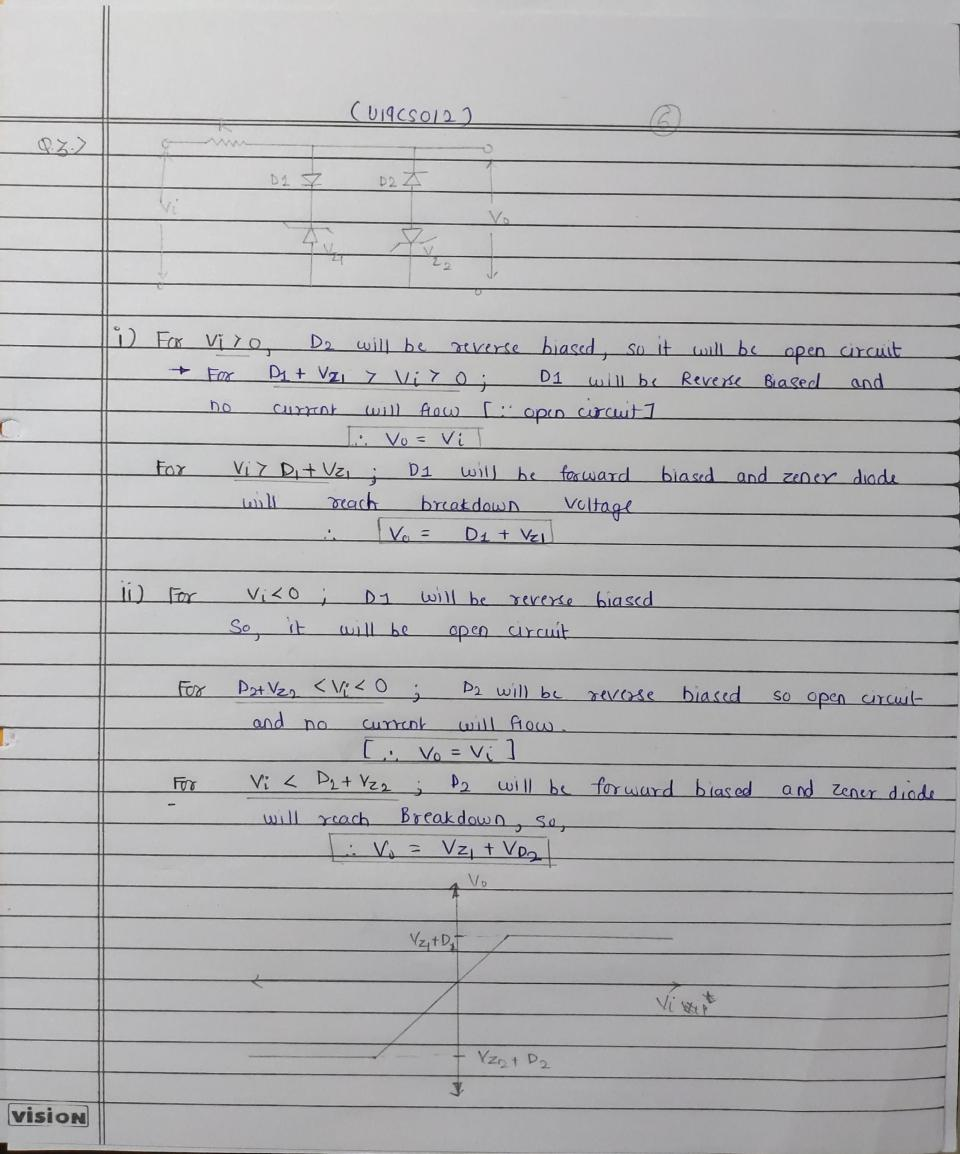 (U19CS012)
6
Q.3.)
R
D1
D2
Vi
Vo
VZ1
VZ2
i) For Vi > 0, D2 will be reverse biased, so it will be open circuit
→ For D1 + VZ1 > Vi > 0 ; D1 will be Reverse Biased and
no current will flow [∵ open circuit]
∴ Vo = Vi
For Vi > D1 + VZ1 ; D1 will be forward biased and zener diode
will reach breakdown voltage
∴ Vo = D1 + VZ1
ii) For Vi < 0 ; D1 will be reverse biased
So, it will be open circuit
For D2 + VZ2 < Vi < 0 ; D2 will be reverse biased so open circuit
and no current will flow.
[∴ Vo = Vi ]
For Vi < D2 + VZ2 ; D2 will be forward biased and zener diode
will reach Breakdown, so,
∴ Vo = VZ1 + VD2
Vo
VZ1 + D1
Vi
VZ2 + D2
vision